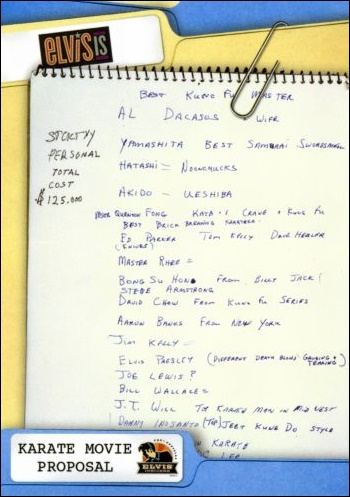 ELVIS IS
BEST KUNG FU MASTER
AL DACASOS WIFE
STRICTLY
PERSONAL
TOTAL
COST
$125,000
YAMASHITA BEST SAMURAI SWORDSMAN
HATASHI = NOONCHUCKS
AKIDO - UESHIBA
FONG KATA CRANE & KUNG FU
BEST BRICK BREAKING
ED PARKER TOM KELLY DAVE HEALER
(KNIVES)
MASTER RHEE =
BONG SU HONG FROM BILLY JACK!
STEVE ARMSTRONG
DAVID CHOW FROM KUNG FU SERIES
AARON BANKS FROM NEW YORK
JIM KELLY -
ELVIS PRESLEY (DIFFERENT DEATH BLOWS GOUGING & TEARING)
JOE LEWIS?
BILL WALLACE
J.T. WILL TOP KARATE MAN IN MID WEST
DANNY INOSANTO (TOP) JEET KUNE DO STYLE
KARATE
LEE
KARATE MOVIE
PROPOSAL
ELVIS